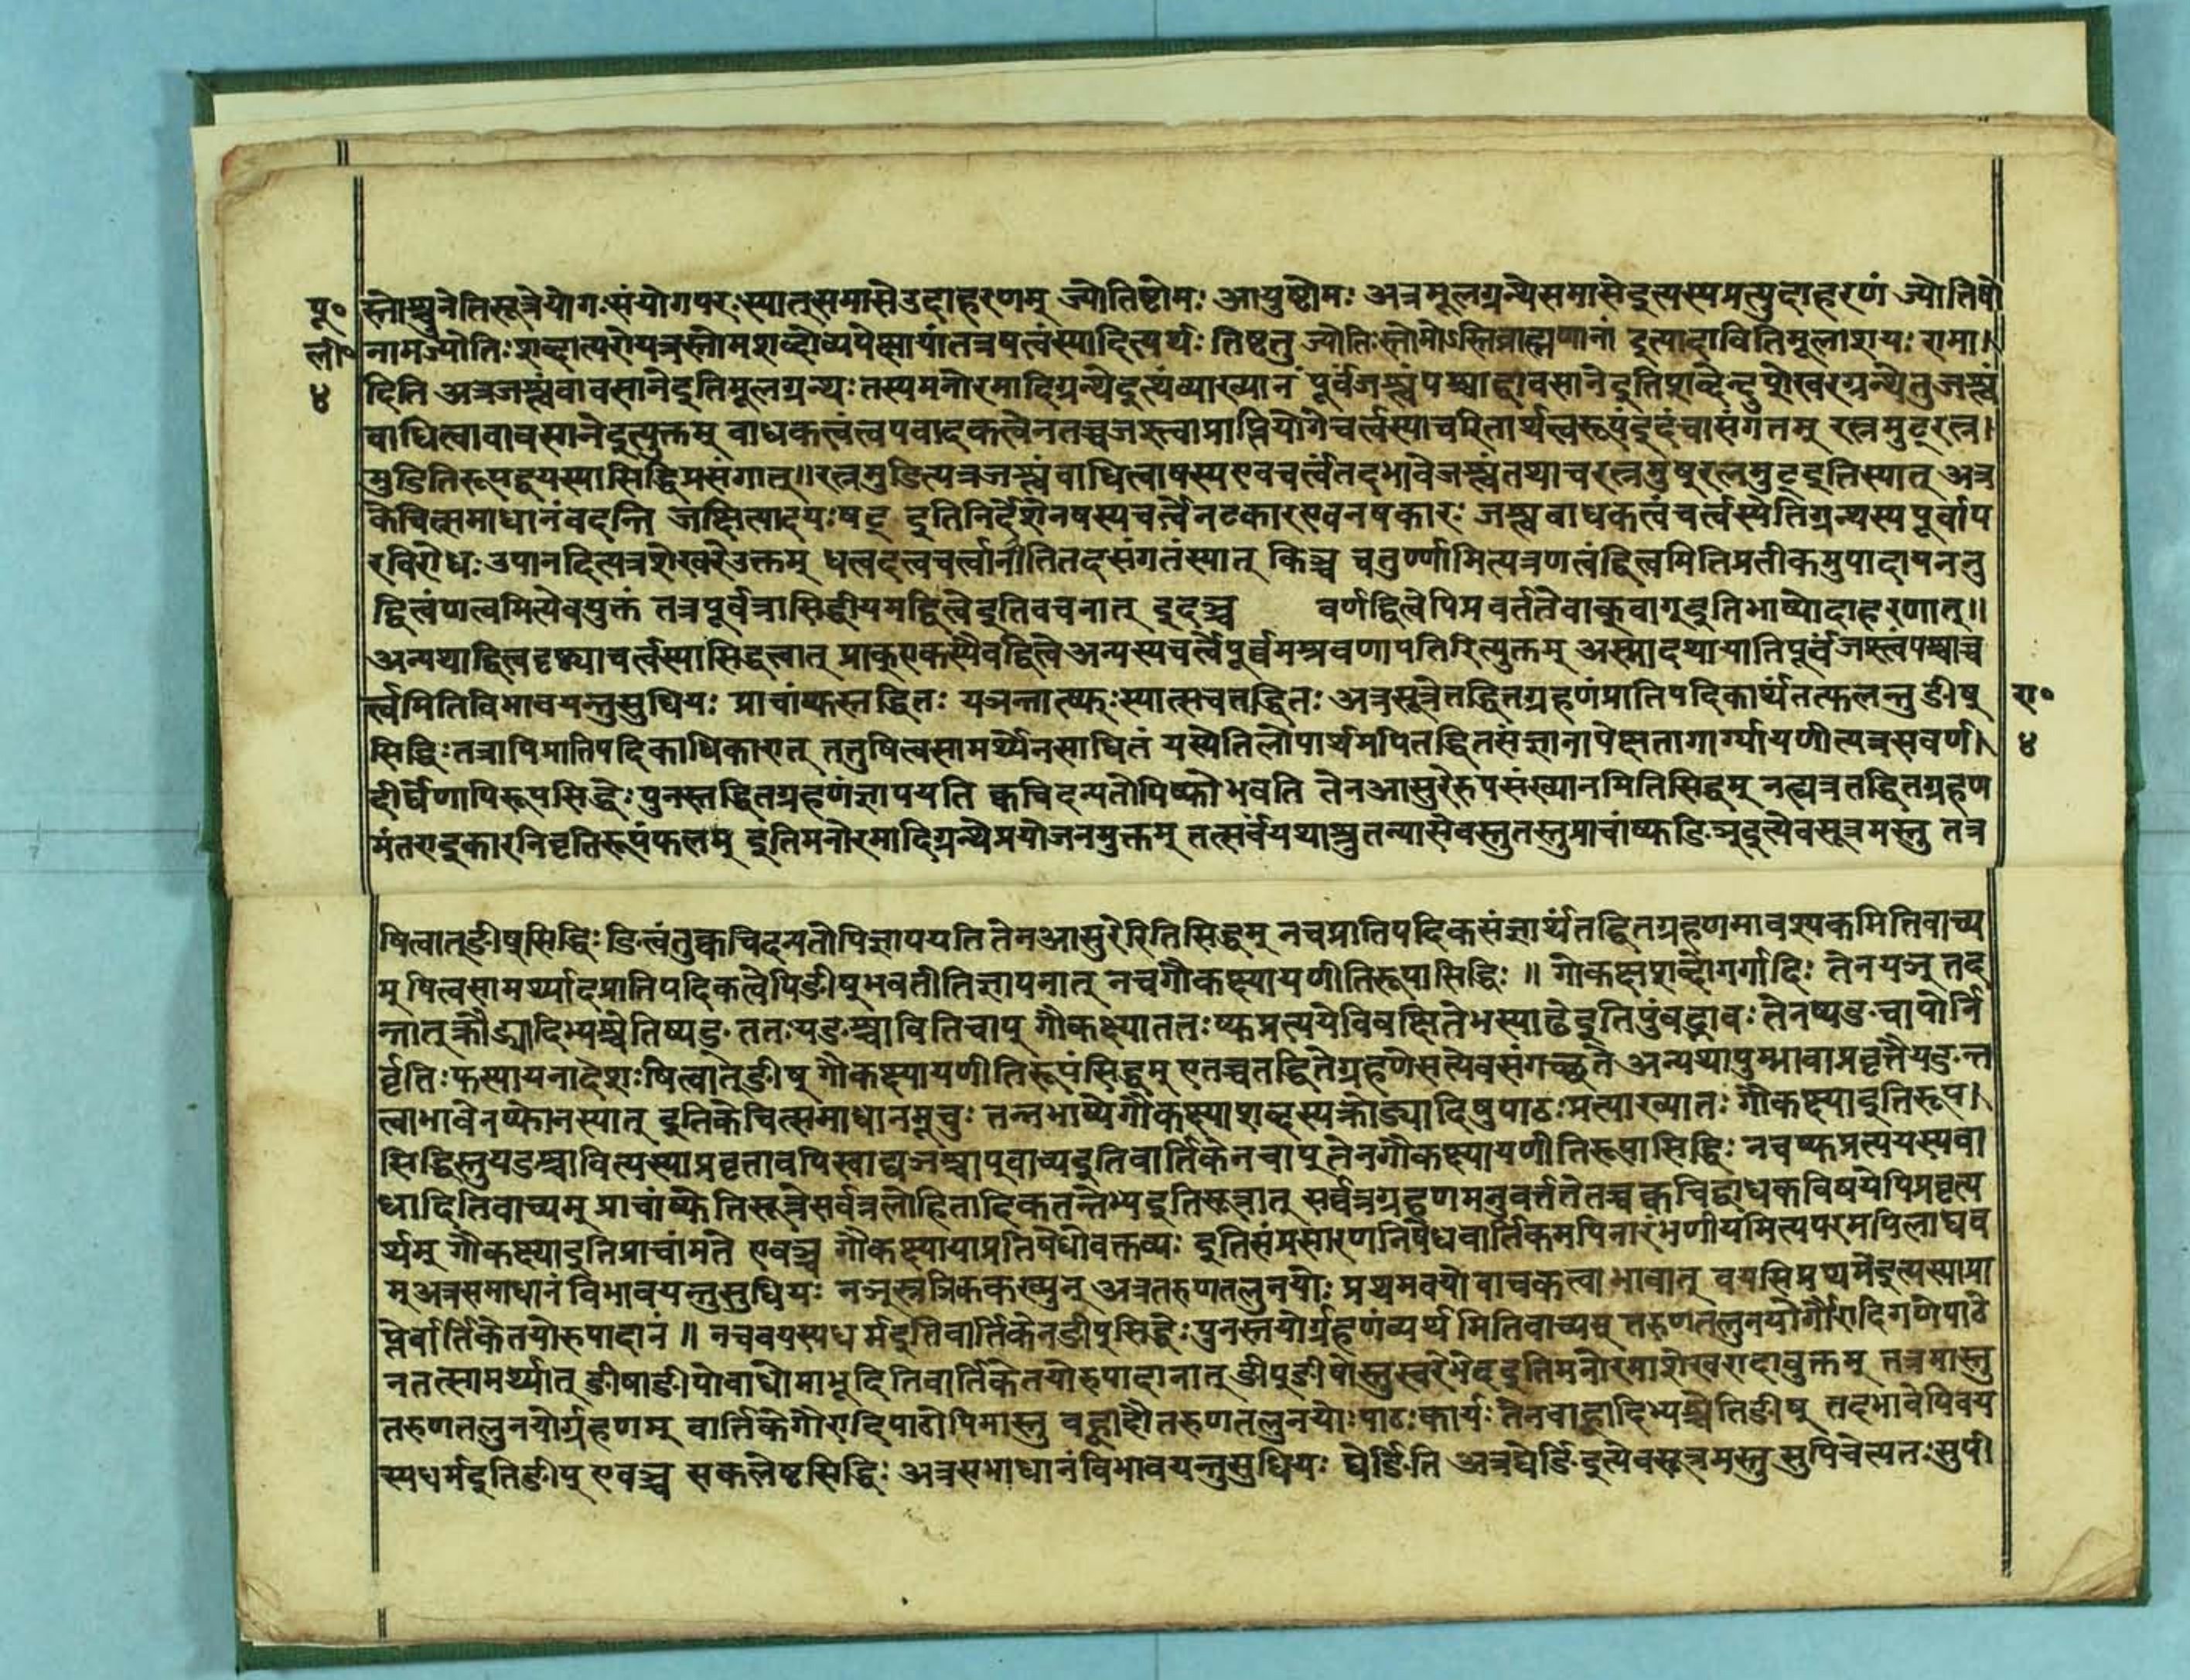 पू॰ स्तोश्चुनेतिसूत्रेयोगःसंयोगपरःस्यात्समासेउदाहरणम् ज्योतिष्टोमः आयुष्टोमः अत्रमूलग्रन्थेसमासेइत्यस्यप्रत्युदाहरणं ज्योतिषो
ली॰ नामज्योतिःशब्दात्परोयत्रस्तोमशब्दोव्यपेक्षायांतत्रषत्वंस्यादित्यर्थः तिष्टतु ज्योतिःस्तोमोऽस्तिब्राह्मणानां इत्यादावितिमूलाशयः रामा।
४ दिति अत्रजश्त्वंवावसानेइतिमूलग्रन्थः तस्यमनोरमादिग्रन्थेइत्थंव्याख्यानं पूर्वंजश्त्वंपश्चाद्वावसानेइतिशब्देन्दुशेखरग्रन्थेतुजश्त्वं
बाधित्वावावसानेइत्युक्तम् बाधकत्वंत्वपवादकत्वेनतच्चजश्त्वाप्राप्तियोगेचर्त्वस्याचरितार्थत्वरूपंइदंचासंगतम् रत्नमुट्रत्न।
मुडितिरूपद्वयस्यासिद्धिप्रसंगात्॥रत्नमुडित्यत्रजश्त्वं बाधित्वाषस्यएवचर्त्वंतदभावेजश्त्वंतथाचरत्नमुष्रत्नमुट्इतिस्यात् अत्र
केचित्समाधानंवदन्ति जक्षित्यादयःषट् इतिनिर्देशेनषस्यचर्त्वेनटकारएवनषकारः जश्त्वबाधकत्वंचर्त्वस्येतिग्रन्थस्यपूर्वाप
रविरोधःउपानदित्यत्रशेखरेउक्तम् धत्वदत्वचर्त्वानीतितदसंगतंस्यात् किञ्च चतुर्ण्णामित्यत्रणत्वंद्वित्वमितिप्रतीकमुपादायननु
द्वित्वंणत्वमित्येवयुक्तं तत्रपूर्वत्रासिद्धीयमद्वित्वेइतिवचनात् इदञ्च वर्णद्वित्वेपिप्रवर्ततेवाक्वाग्इतिभाष्योदाहरणात्॥
अन्यथाद्वित्वदृष्ट्याचर्त्वस्यासिद्धत्वात् प्राक्एकस्यैवद्वित्वेअन्यस्यचर्त्वेपूर्वमश्रवणापतिरित्युक्तम् अस्मादथायातिपूर्वंजश्त्वंपश्चाच्च
र्त्वमितिविभावयन्तुसुधियः प्राचांष्फस्तद्धितः यञन्तात्ष्फःस्यात्सचतद्धितः अत्रसूत्रेतद्धितग्रहणंप्रातिपदिकार्थंतत्फलन्तु ङीष् रा॰
सिद्धिःतत्रापिप्रातिपदिकाधिकारात् तत्तुषित्वसामर्थ्येनसाधितं यस्येतिलोपार्थमपितद्धितसंज्ञानापेक्षितागार्ग्यायणीत्यत्रसवर्ण। ४
दीर्घेणापिरूपसिद्धेःपुनस्तद्धितग्रहणंज्ञापयति क्वचिदन्यतोपिष्फोभवति तेनआसुरेरुपसंख्यानमितिसिद्धम् नत्वत्रतद्धितग्रहण
मंतराइकारनिवृतिरूपंफलम् इतिमनोरमादिग्रन्थेप्रयोजनमुक्तम् तत्सर्वंयथाश्रुतन्यासेवस्तुतस्तुप्राचांष्फङिञ्इत्येवसूत्रमस्तु तत्र
षित्वात्ङीष्सिद्धिः ङित्वंतुक्वचिदन्यतोपिज्ञापयति तेनआसुरेरितिसिद्धम् नचप्रातिपदिकसंज्ञार्थंतद्धितग्रहणमावश्यकमितिवाच्य
म् षित्वसामर्थ्यादप्रातिपदिकत्वेपिङीष्भवतीतिज्ञापनात् नचगौकक्ष्यायणीतिरूपासिद्धिः ॥ गोकक्षशब्दोगर्गादिः तेनयञ् तद
न्तात् क्रौड्यादिभ्यश्चेतिष्यङ् ततःयङश्चावितिचाप् गौकक्ष्याततःष्फप्रत्ययेविवक्षितेभस्याढेइतिपुंवद्भावः तेनष्यङ्चापोर्नि
र्वृतिःफस्यायनादेशःषित्वात्ङीष् गौकक्ष्यायणीतिरूपंसिद्धम् एतच्चतद्धितेग्रहणेसत्येवसंगच्छते अन्यथापुम्भावाप्रवृत्तैयङन्त
त्वाभावेनष्फोनस्यात् इतिकेचित्समाधानमूचुः तन्नभाष्येगौकक्ष्याशब्दस्यक्रौड्यादिषुपाठःप्रत्याख्यातः गौकक्ष्याइतिरूप।
सिद्धिस्तुयङश्चावित्यस्याप्रवृतावपिस्वाद्यञश्चाप्वाच्यइतिवार्तिकेनचाप् तेनगौकक्ष्यायणीतिरूपासिद्धिः नचष्फप्रत्ययस्यवा
धादितिवाच्यम् प्राचांष्फेतिसूत्रेसर्वत्रलोहितादिकतन्तेभ्यइतिसूत्रात् सर्वत्रग्रहणमनुवर्त्ततेतच्चक्वचिद्बाधकविषयेपिप्रवृत्य
र्थम् गौकक्ष्याइतिप्राचांमते एवञ्च गौकक्ष्यायाप्रतिषेधोवक्तव्यः इतिसंप्रसारणनिषेधवार्तिकमपिनारंभणीयमित्यपरमपिलाघव
म्अत्रसमाधानं विभावयन्तुसुधियः नञ्स्नञीकक्ख्युन् अत्रतरुणतलुनयोः प्रथमवयोवाचकत्वाभावात् वयसिप्रथमेइत्यस्याप्रा
प्तेर्वार्तिकेतयोरुपादानं ॥ नचवयस्यधर्मइतिवार्तिकेनङीप्सिद्धेःपुनस्तयोर्ग्रहणंव्यर्थमितिवाच्यम् तरुणतलुनयोर्गौरादिगणेपाठे
नतत्सामर्थ्यात् ङीषाङीपोबाधोमाभूदितिवार्तिकेतयोरुपादानात् ङीप्ङीषोस्तुस्वरेभेदइतिमनोरमाशेखरादावुक्तम् तन्नमास्तु
तरुणतलुनयोर्ग्रहणम् वार्तिकेगौरादिपाठोपिमास्तु बह्वादौतरुणतलुनयोःपाठःकार्यःतेनबाह्वादिभ्यश्चेतिङीष् तदभावेपिवय
स्यधर्मइतिङीप् एवञ्च सकलेष्टसिद्धिः अत्रसमाधानंविभावयन्तुसुधियः घेर्ङिति अत्रघेर्ङिइत्येवसूत्रमस्तु सुपिचेत्यतःसुपी